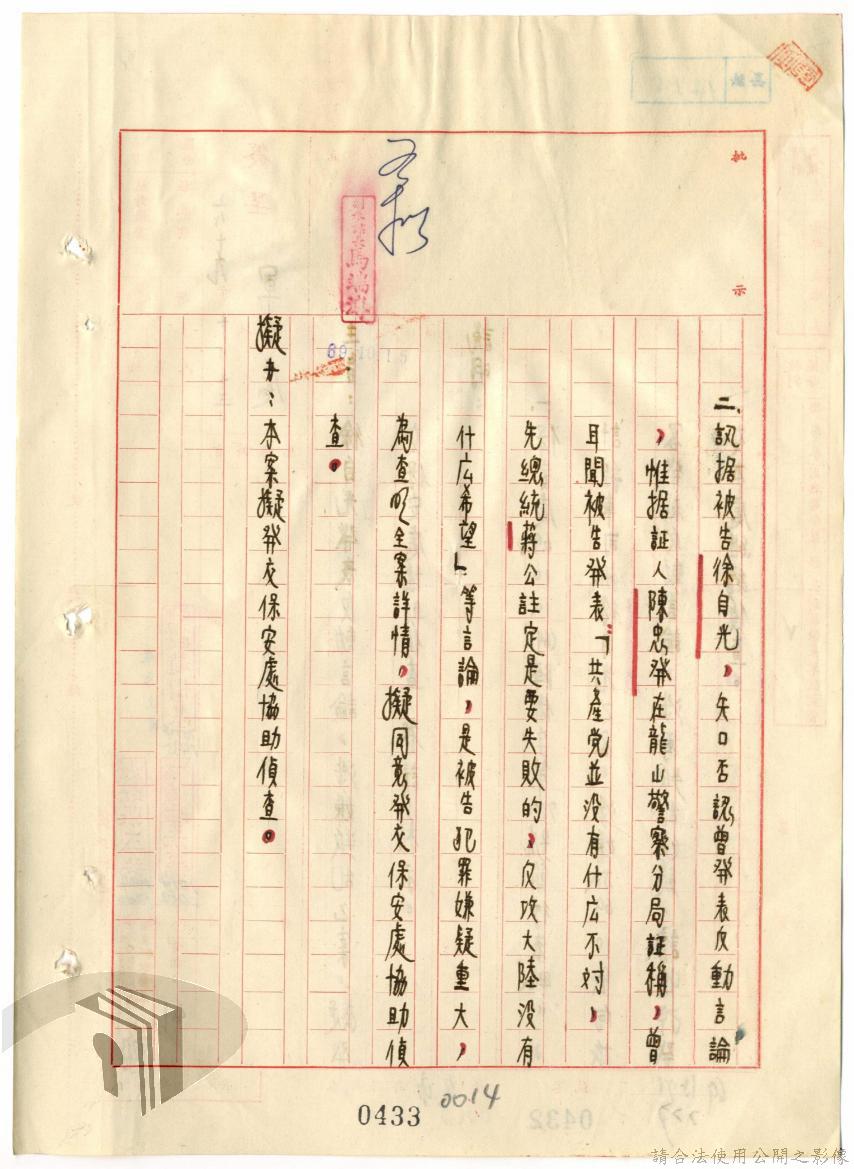 批示
如擬
馬瑞淇
69.10.15
二、訊据被告徐自光，矢口否認曾發表反動言論
，惟据証人陳忠發在龍山警察分局証稱，曾
耳聞被告發表「共產党並没有什広不対，
先總統蔣公註定是要失敗的，反攻大陸没有
什広希望」等言論，是被告犯罪嫌疑重大，
為查明全案詳情，擬同意發交保安處協助偵
查。
擬办：本案擬發交保安處協助偵查。
0433
0014
請合法使用公開之影像